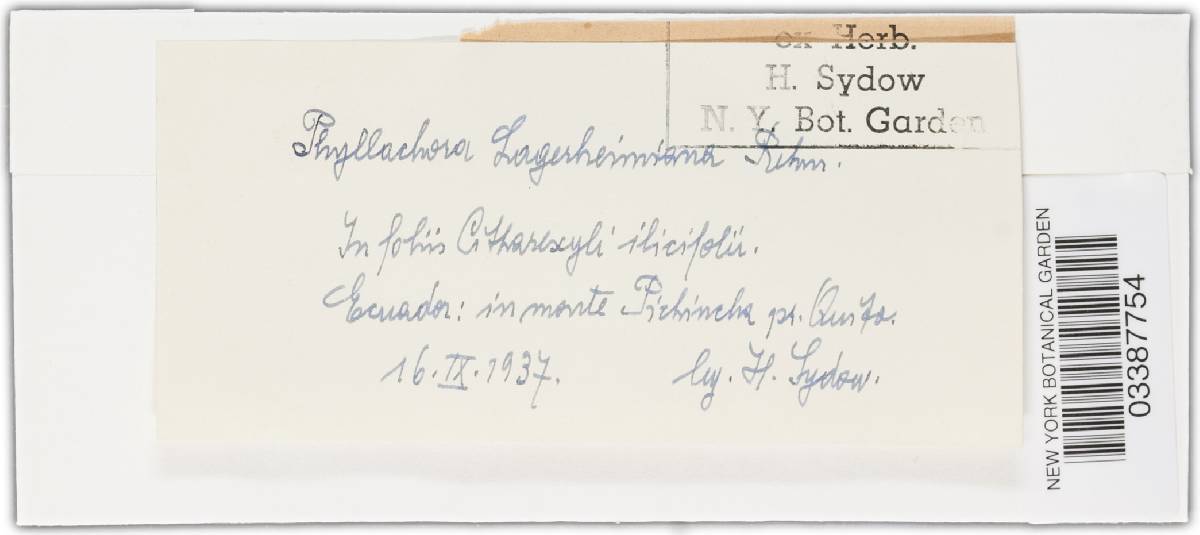 ex Herb.
H. Sydow
N. Y. Bot. Garden
Phyllachora Lagerheimiana Rehm.
In foliis Citharexyli ilicifolii.
Ecuador: in monte Pichincha pr. Quito.
16.IX.1937. leg. H. Sydow.
NEW YORK BOTANICAL GARDEN
03387754